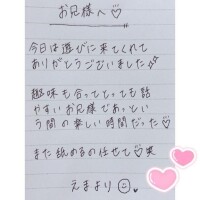 お兄様へ♡
今日は遊びに来てくれて
ありがとうございました
趣味も合ってとっても話
やすいお兄様であっとい
う間の楽しい時間だった♡
また舐めるの任せて♡笑
えまより